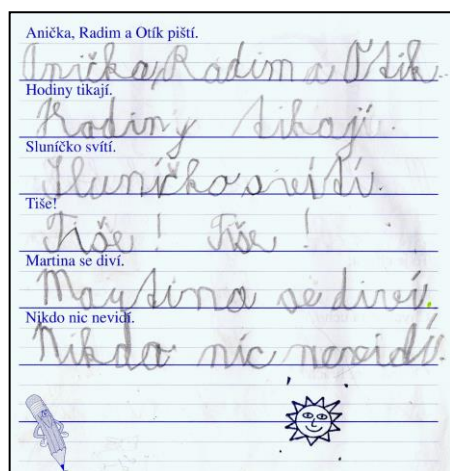 Anička, Radim a Otík piští.
Anička, Radim a Otik
Hodiny tikají.
Hodiny tikají.
Sluníčko svítí.
Sluníčko svítí.
Tiše!
Tiše! Tiše!
Martina se diví.
Martina se diví.
Nikdo nic nevidí.
Nikdo nic nevidí.